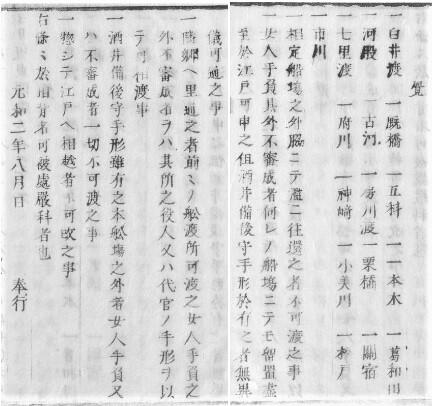 覚
一白井渡 一厩橋 一五料 一一本木 一葛和田
一河股 一古河 一房川渡 一栗橋 一關宿
一七里渡 一府川 一神崎 一小美川 一松戸
一市川
一相定船塲之外脇ニテ濫ニ往還之者不可渡之事
一女人手負其外不審成者何レノ船塲ニテモ留置盡
至於江戸可申之但酒井備後守手形於有之者無異
儀可通之事
一隣郷ヘ里通之者前ミノ舩渡所可渡之女人手負之
外不審成者ヲハ其所之役人又ハ代官ノ手形ヲ以
テ可相渡事
一酒井備後守手形雖有之本舩塲之外者女人手負又
ハ不審成者一切不可渡之事
一惣シテ江戸ヘ相越者不可改之事
右條々於相背者可被處嚴科者也
元和二年八月日 奉行